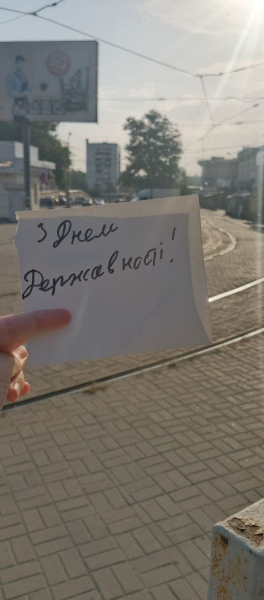 З Днем
Державності!